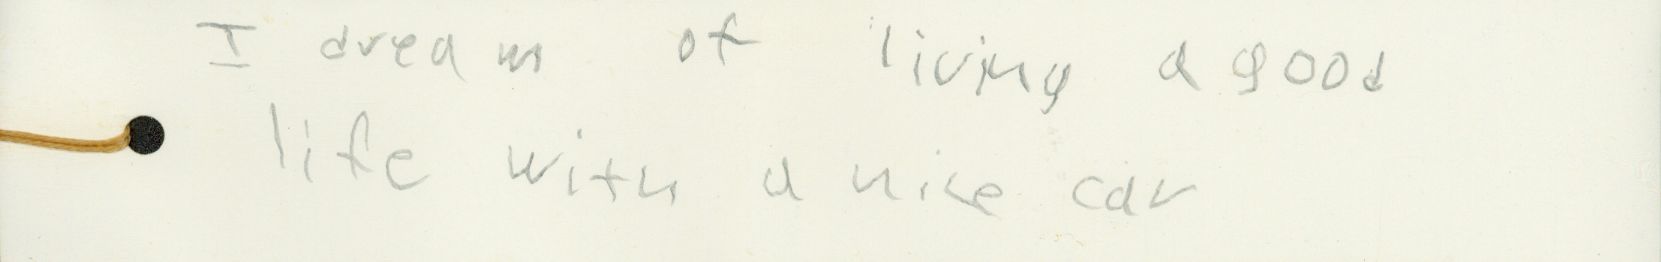 I dream of living a good
life with a nice car